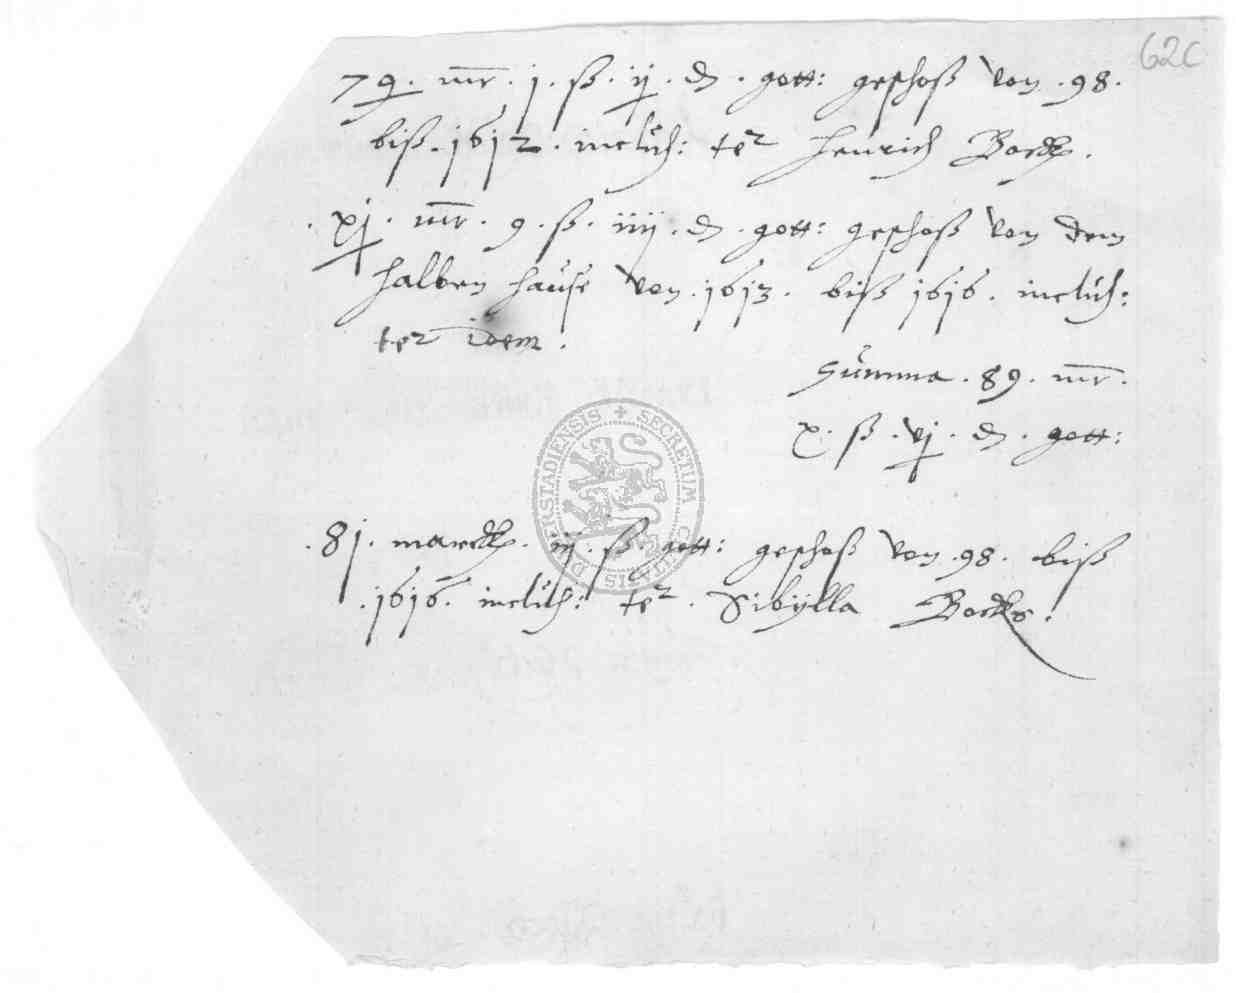 62c
79. mr. j. ß. ij. ₰. gott: geschoß von .98.
biß .1612. inclus: ter Henrich Bock.
.xj. mr. 9. ß. iiij. ₰. gott: geschoß von dem
halben hause von .1613. biß 1616. inclus:
ter idem.
Summa .89. mr.
x. ß. vj. ₰. gott:
.81. marck. iij. ß. gott: geschoß von .98. biß
.1616. inclus: ter. Sibÿlla Bocks.
SECRETUM CIVITATIS DUDERSTADIENSIS